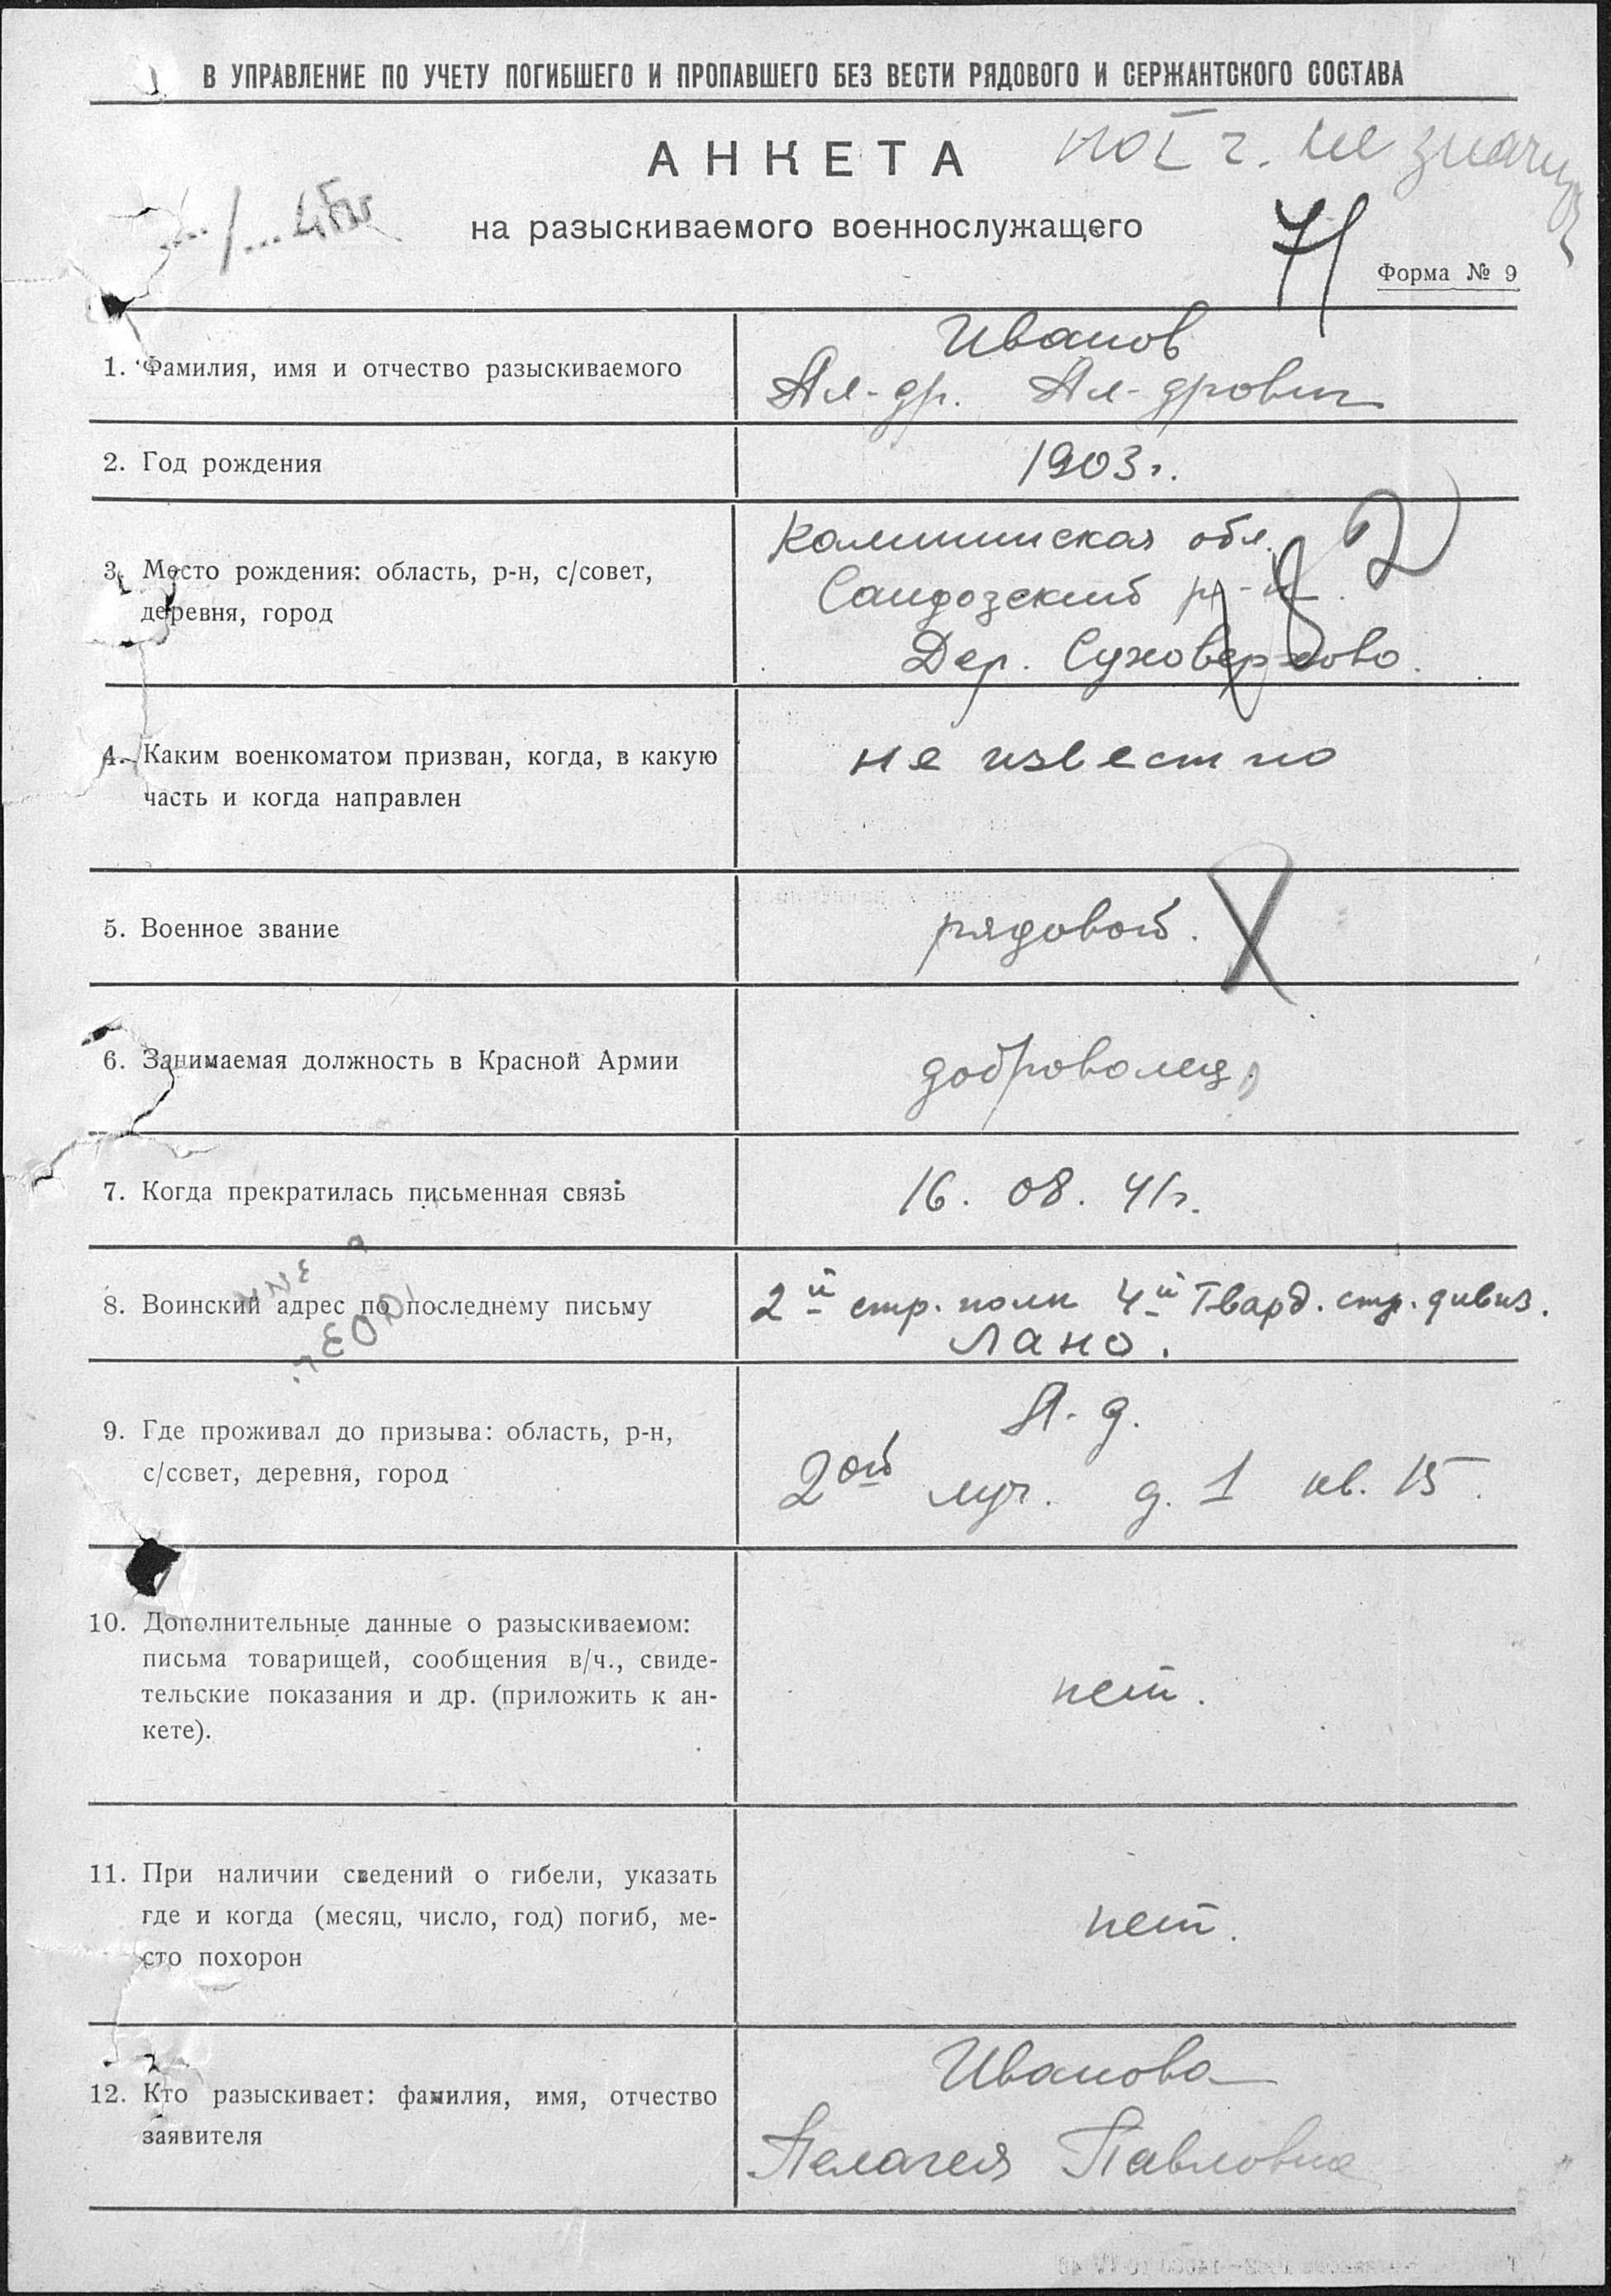 В УПРАВЛЕНИЕ ПО УЧЕТУ ПОГИБШЕГО И ПРОПАВШЕГО БЕЗ ВЕСТИ РЯДОВОГО И СЕРЖАНТСКОГО СОСТАВА
АНКЕТА
по I ч. не значится
на разыскиваемого военнослужащего
71
Форма № 9
1. Фамилия, имя и отчество разыскиваемого
Иванов
Ал-др. Ал-дрович
2. Год рождения
1903г.
3. Место рождения: область, р-н, с/совет,
деревня, город
Калининская обл.
Сандозский р-н.
Дер. Суховерхово.
4. Каким военкоматом призван, когда, в какую
часть и когда направлен
не известно
5. Военное звание
рядовой.
6. Занимаемая должность в Красной Армии
доброволец
7. Когда прекратилась письменная связь
16. 08. 41г.
8. Воинский адрес по последнему письму
2й стр. полк 4й Гвард. стр. дивиз.
ЛАНО.
9. Где проживал до призыва: область, р-н,
с/совет, деревня, город
Л-д.
2ой луч. д. 1 кв. 15.
10. Дополнительные данные о разыскиваемом:
письма товарищей, сообщения в/ч., свиде-
тельские показания и др. (приложить к ан-
кете).
нет.
11. При наличии сведений о гибели, указать
где и когда (месяц, число, год) погиб, ме-
сто похорон
нет.
12. Кто разыскивает: фамилия, имя, отчество
заявителя
Иванова
Пелагея Павловна